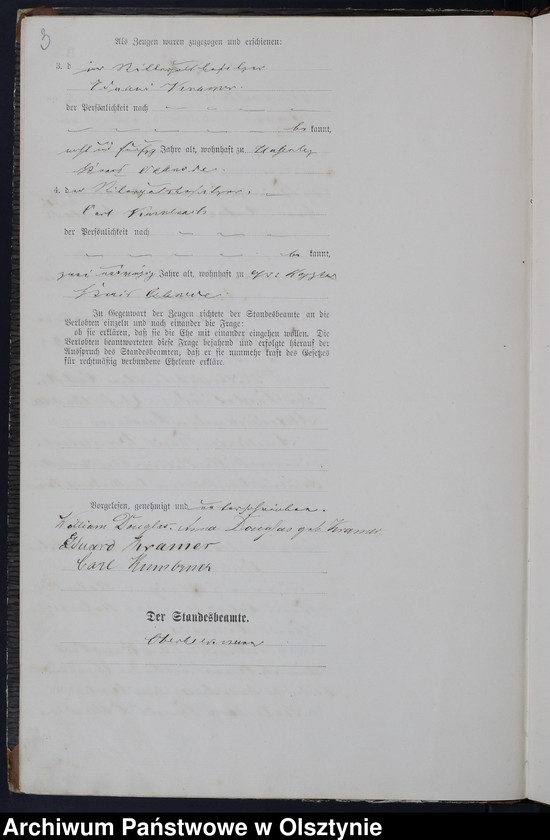 3
Als Zeugen waren zugezogen und erschienen:
3. der Rittergutsbesitzer
Eduard Kramer
der Persönlichkeit nach
be kannt,
acht und fünfzig Jahre alt, wohnhaft zu
Kreis
4. der Rittergutsbesitzer
Carl
der Persönlichkeit nach
be kannt,
zwei Jahre alt, wohnhaft zu
Kreis
In Gegenwart der Zeugen richtete der Standesbeamte an die
Verlobten einzeln und nach einander die Frage:
ob sie erklären, daß sie die Ehe mit einander eingehen wollen. Die
Verlobten beantworteten diese Frage bejahend und erfolgte hierauf der
Ausspruch des Standesbeamten, daß er sie nunmehr kraft des Gesetzes
für rechtmäßig verbundene Eheleute erkläre.
Vorgelesen, genehmigt und unterschrieben.
William Douglas. Anna Douglas geb. Kramer
Eduard Kramer
Carl
Der Standesbeamte.
Archiwum Państwowe w Olsztynie